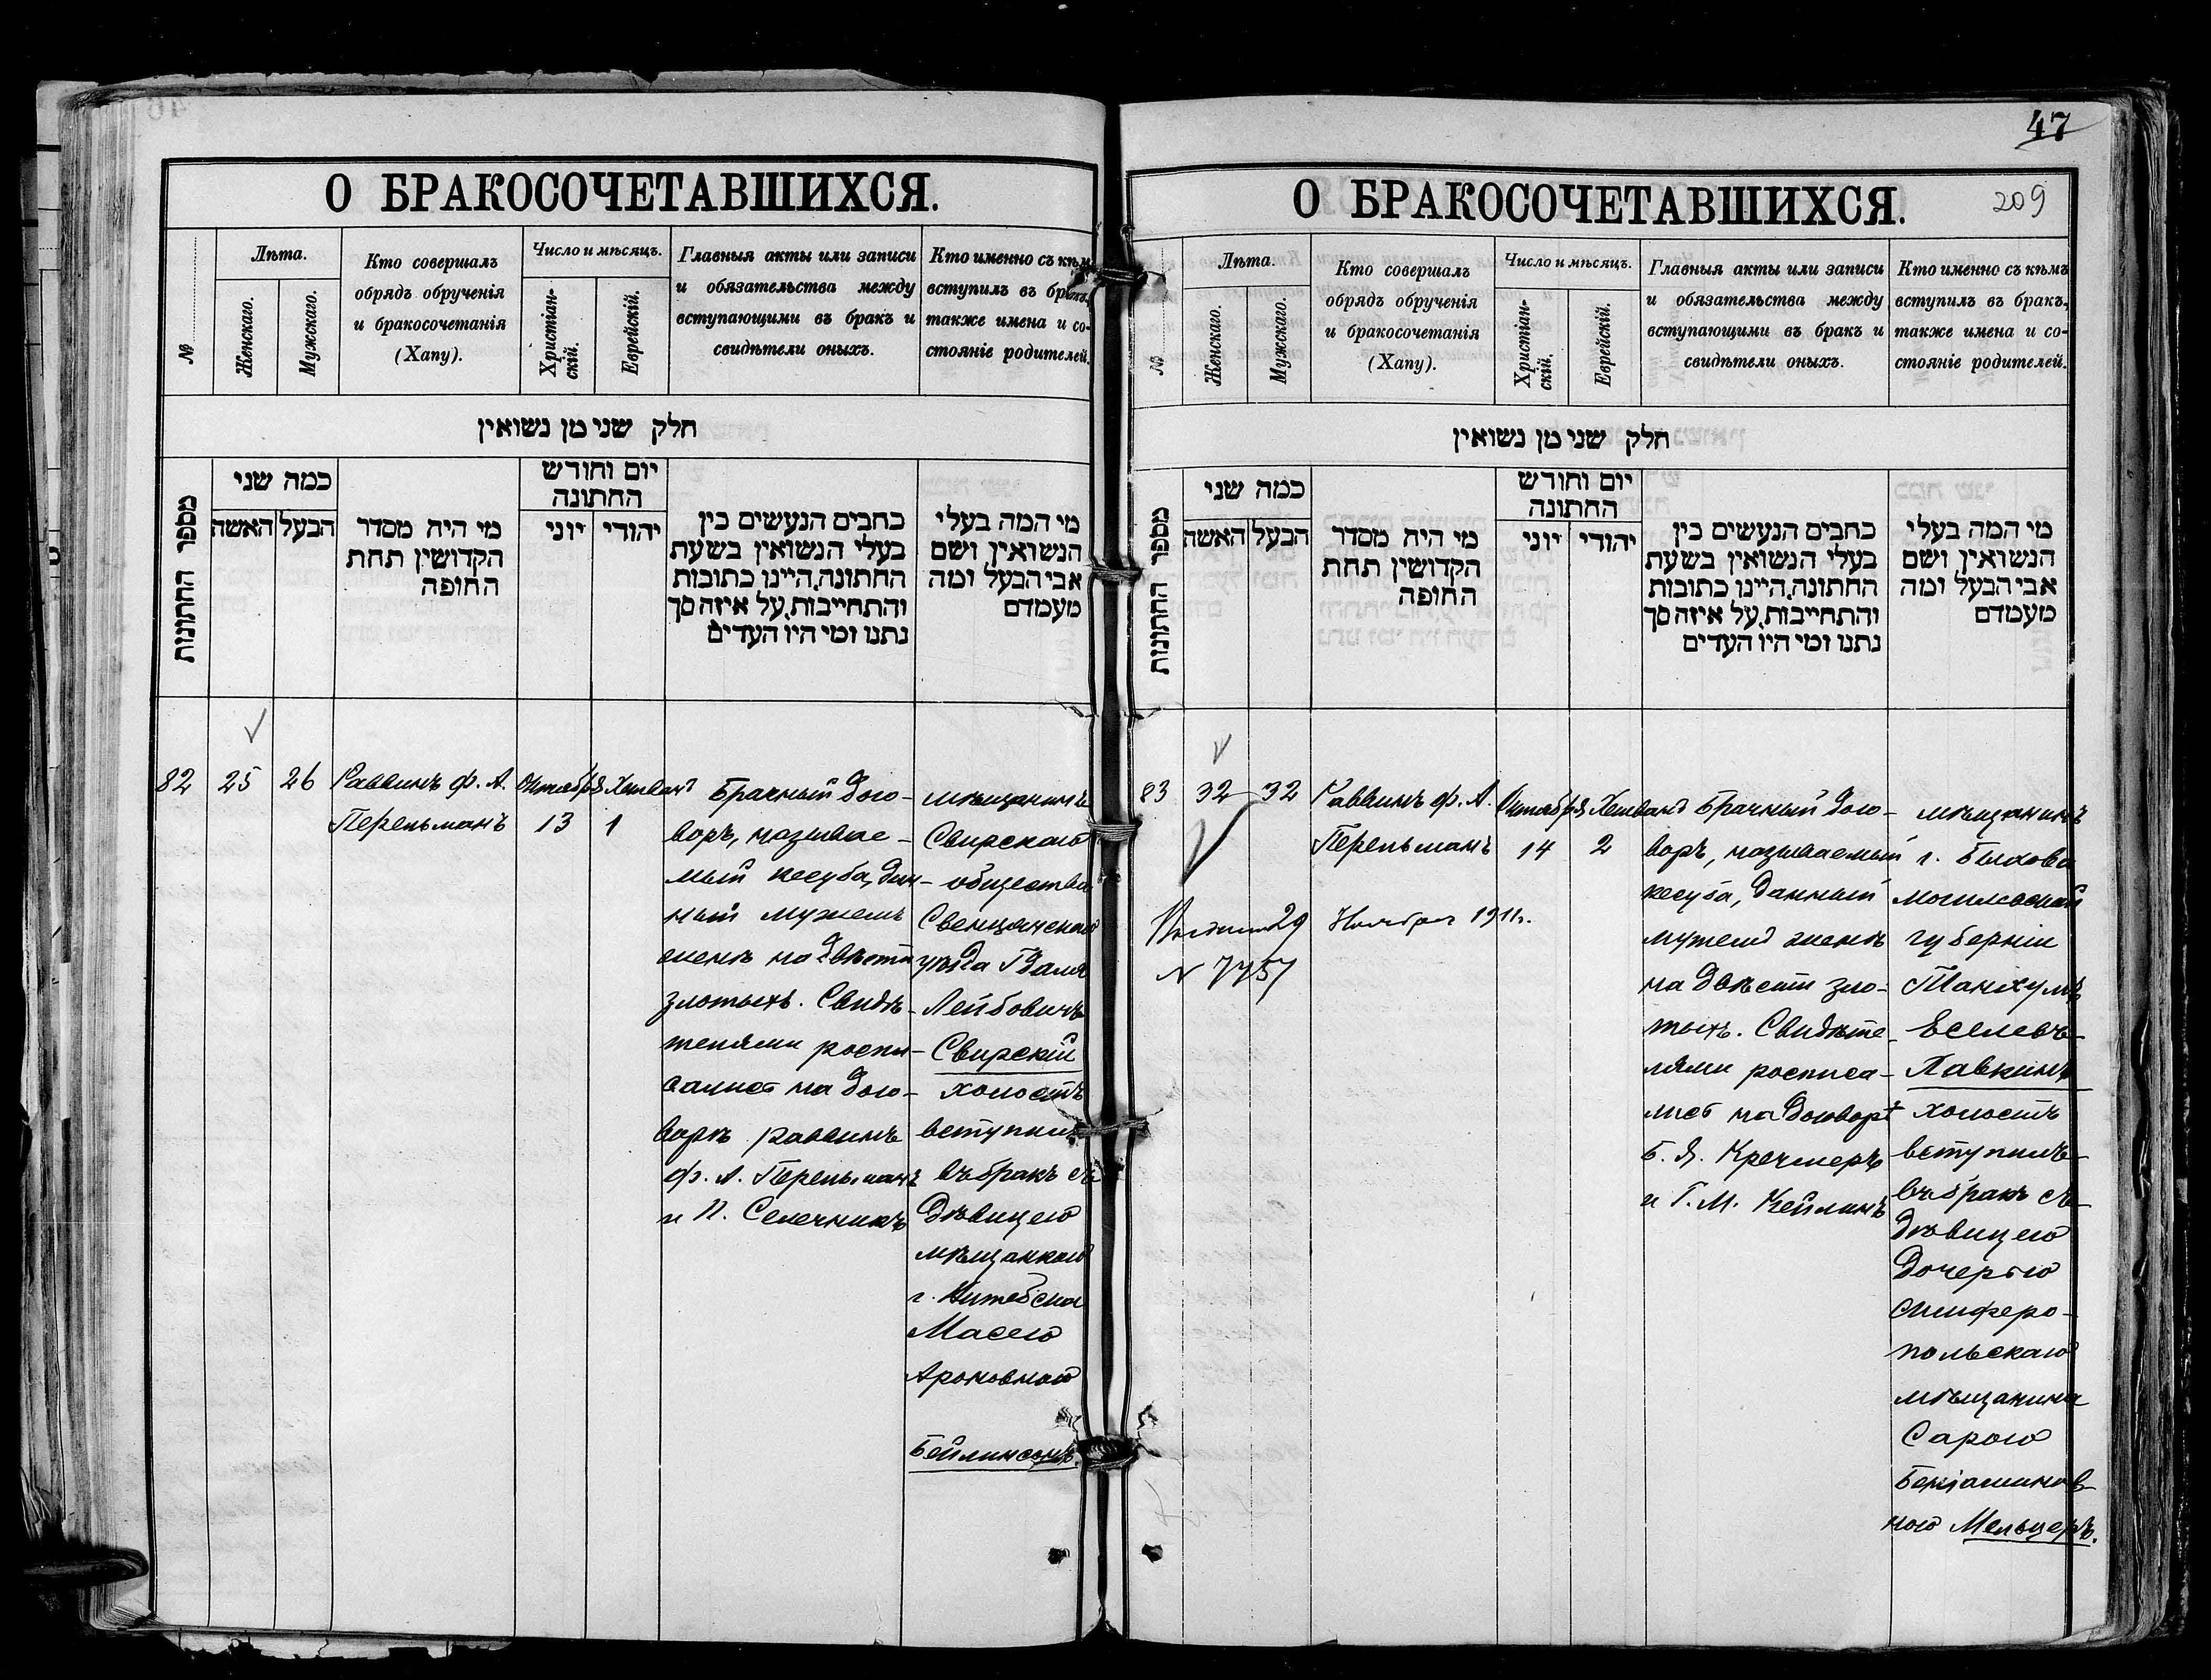 О БРАКОСОЧЕТАВШИХСЯ.
№
Лѣта.
Женскаго.
Мужскаго.
Кто совершалъ
обрядъ обрученія
и бракосочетанія
(Хапу).
Число и мѣсяцъ.
Христіан-
скій.
Еврейскій.
Главныя акты или записи
и обязательства между
вступающими въ бракъ и
свидѣтели оныхъ.
Кто именно съ кѣмъ
вступилъ въ бракъ,
также имена и со-
стояніе родителей.
חלק שני מן נשואין
מספר החתונות
כמה שני
האשה
הבעל
מי היה מסדר
הקדושין תחת
החופה
יום וחודש
החתונה
יוני
יהודי
כתבים הנעשים בין
בעלי הנשואין בשעת
החתונה, היינו כתובות
והתחייבות, על איזה סך
נתנו ומי היו העדים
מי המה בעלי
הנשואין ושם
אבי הבעל ומה
מעמדם
82
25
26
Раввинъ Ф. А.
Перельманъ
Октября
13
Хешванъ
1
Брачный дого-
воръ, называе-
мый кесуба, дан-
ный мужемъ
женѣ на двѣсти
злотыхъ. Свидѣ-
телями распи-
сались на дого-
ворѣ раввинъ
Ф. А. Перельманъ
и П. Селечникъ
мѣщанинъ
Свирскаго
общества
Свенцянскаго
уѣзда Гдаля
Лейбовичъ
Свирскій
холостъ
вступилъ
въ бракъ съ
дѣвицею
мѣщанкою
г. Витебска
Масею
Ароновною
Бейлинсонъ.
47
209
О БРАКОСОЧЕТАВШИХСЯ.
№
Лѣта.
Женскаго.
Мужскаго.
Кто совершалъ
обрядъ обрученія
и бракосочетанія
(Хапу).
Число и мѣсяцъ.
Христіан-
скій.
Еврейскій.
Главныя акты или записи
и обязательства между
вступающими въ бракъ и
свидѣтели оныхъ.
Кто именно съ кѣмъ
вступилъ въ бракъ,
также имена и со-
стояніе родителей.
חלק שני מן נשואין
מספר החתונות
כמה שני
האשה
הבעל
מי היה מסדר
הקדושין תחת
החופה
יום וחודש
החתונה
יוני
יהודי
כתבים הנעשים בין
בעלי הנשואין בשעת
החתונה, היינו כתובות
והתחייבות, על איזה סך
נתנו ומי היו העדים
מי המה בעלי
הנשואין ושם
אבי הבעל ומה
מעמדם
83
32
32
Раввинъ Ф. А.
Перельманъ
Октября
14
Хешванъ
2
29 Ноября 1911г.
N 7757
Брачный дого-
воръ, называемый
кесуба, данный
мужемъ женѣ
на двѣсти зло-
тыхъ. Свидѣте-
лями росписа-
лись на договорѣ
Б. Я. Кречмеръ
и Г. М. Кейлинъ
мѣщанинъ
г. Быхова
Могилевской
губерніи
Танхумъ
Еселевъ
Павкинъ
холостъ
вступилъ
въ бракъ съ
дѣвицею
дочерью
симферо-
польскаго
мѣщанина
Сарою
Беніаминов-
ною Мельцеръ.